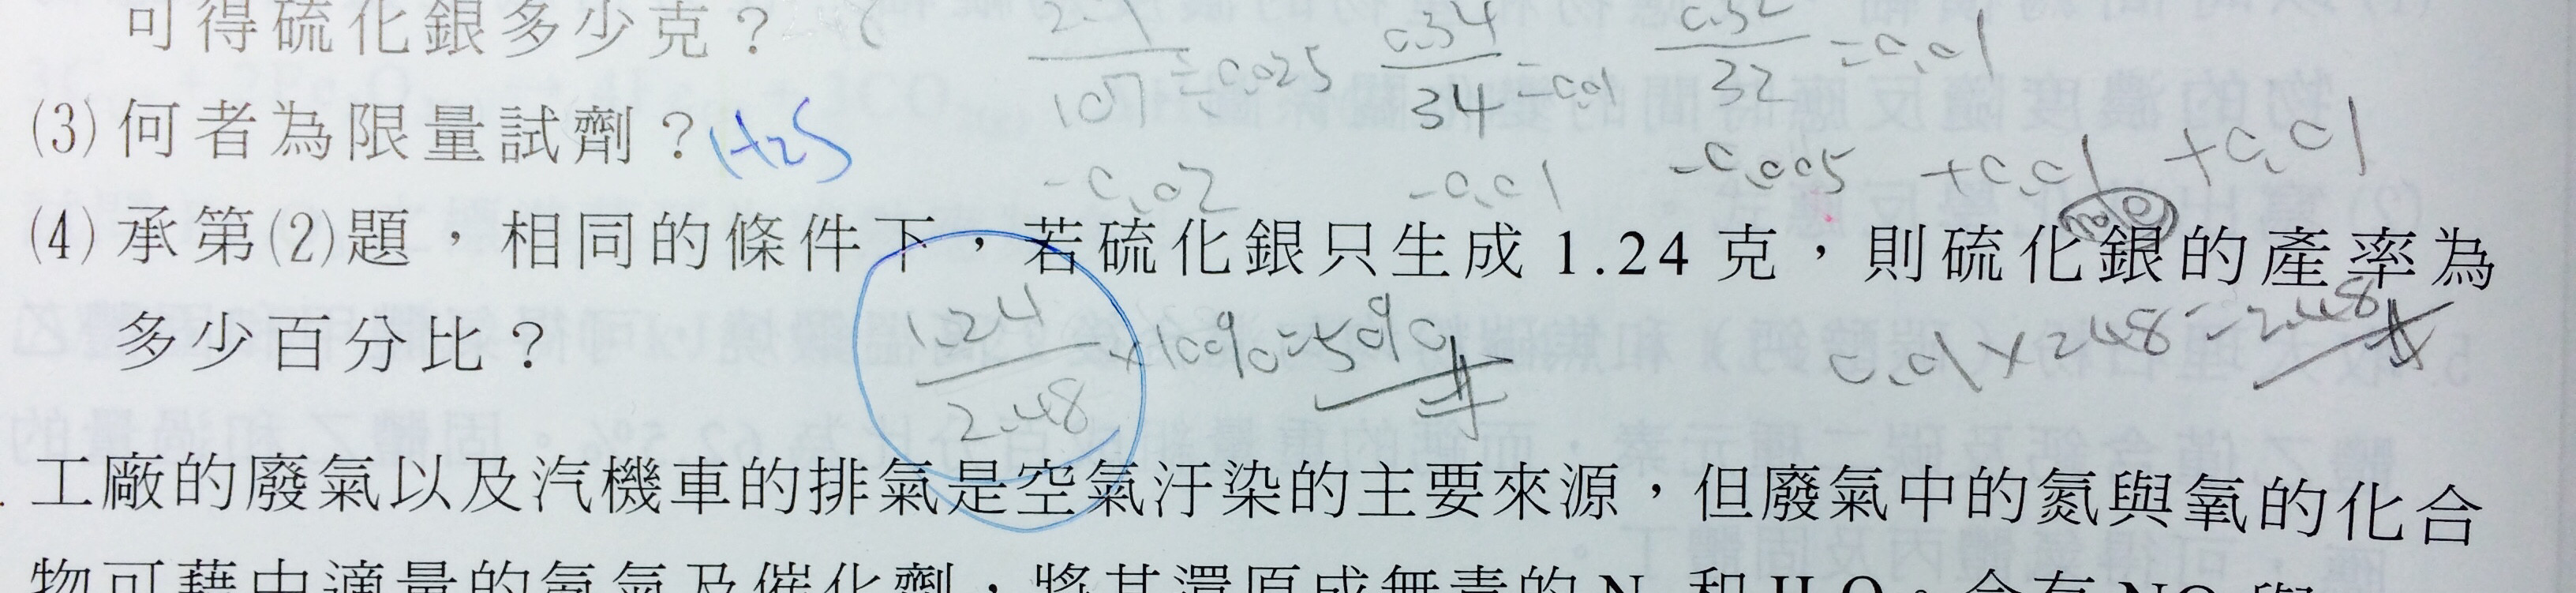 可得硫化銀多少克？
2.7/107=0.025 0.34/34=0.01 0.32/32=0.01
(3)何者為限量試劑？H2S
-0.02 -0.01 -0.005 +0.01 +0.01
(4)承第(2)題，相同的條件下，若硫化銀只生成1.24克，則硫化銀的產率為
多少百分比？
1.24/2.48×100%=50%
0.01×248=2.48
工廠的廢氣以及汽機車的排氣是空氣汙染的主要來源，但廢氣中的氮與氧的化合
物可藉由適量的氨氣及催化劑，將其還原成無毒的N2和H2O。含有NO與